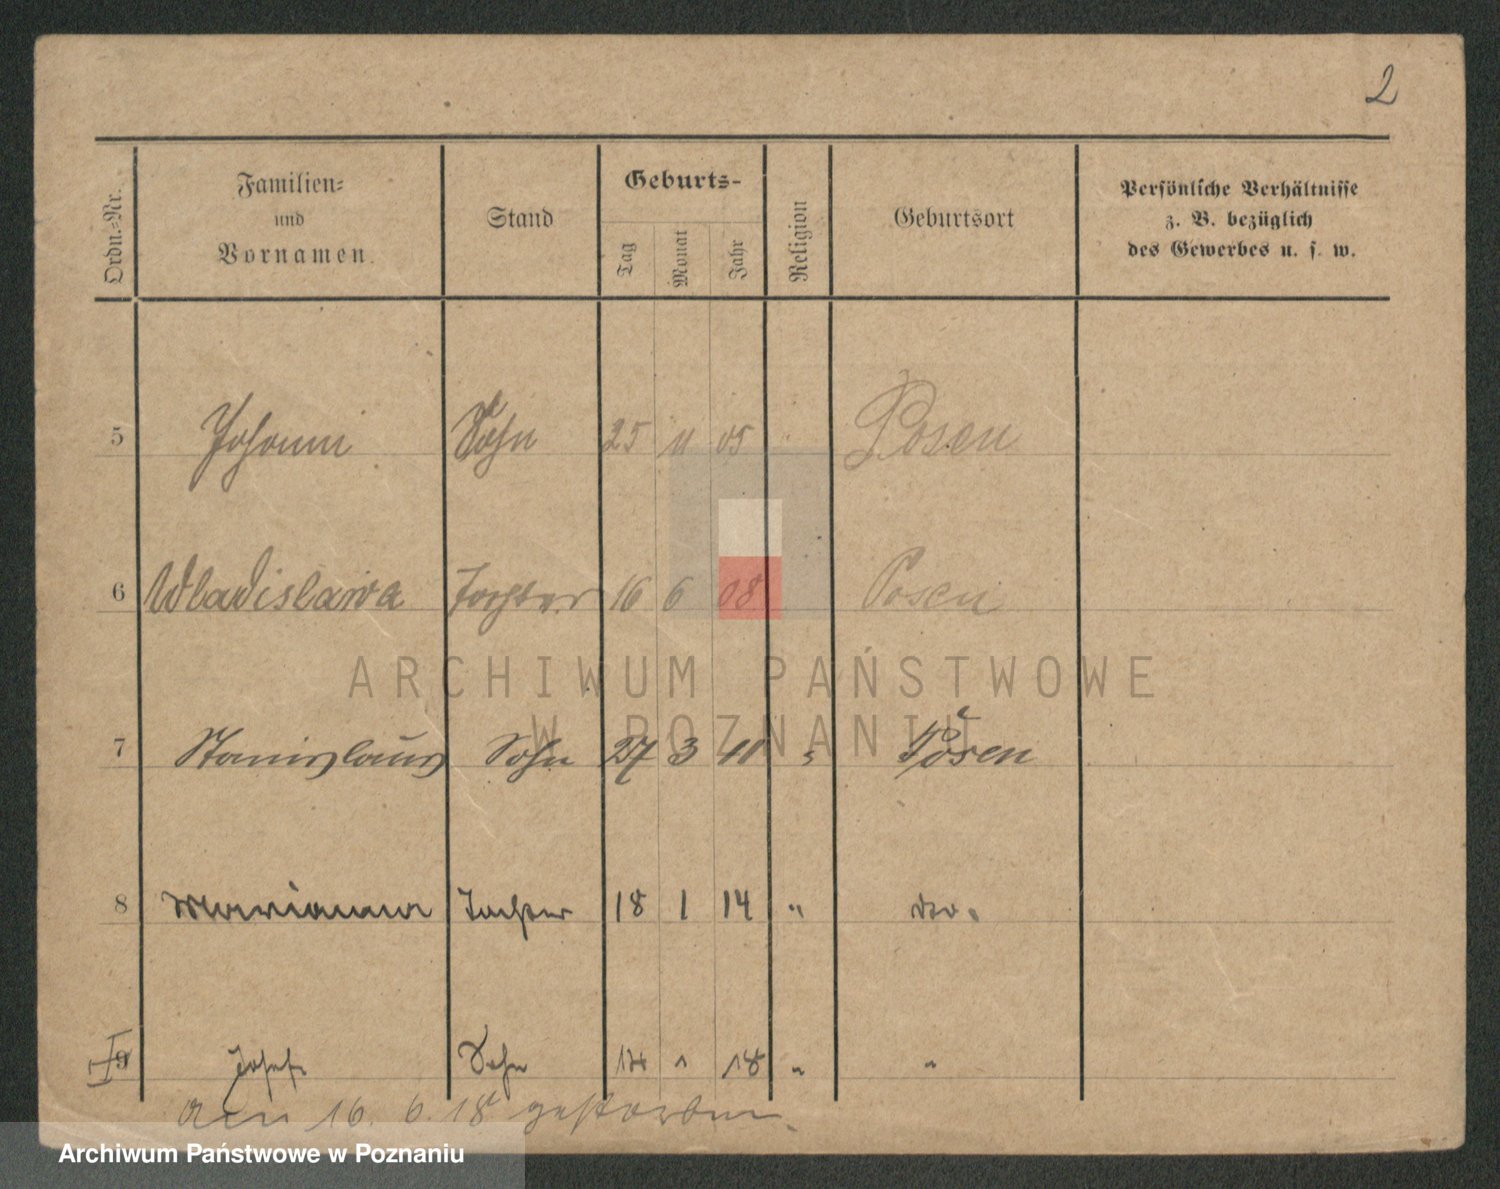 2
Ordn.-Nr.
Familien-
und
Vornamen.
Stand
Geburts-
Tag
Monat
Jahr
Religion
Geburtsort
Persönliche Verhältnisse
z. B. bezüglich
des Gewerbes u. s. w.
5 Johann Sohn 25 11 05 " Posen
6 Wladislawa Tochter 16 6 08 Posen
ARCHIWUM PAŃSTWOWE
W POZNANIU
7 Stanislaus Sohn 27 3 10 " Posen
8 Marianna Tochter 18 1 14 " do.
9 Josef Sohn 1 18 " "
am 16. 6. 18 gestorben.
Archiwum Państwowe w Poznaniu